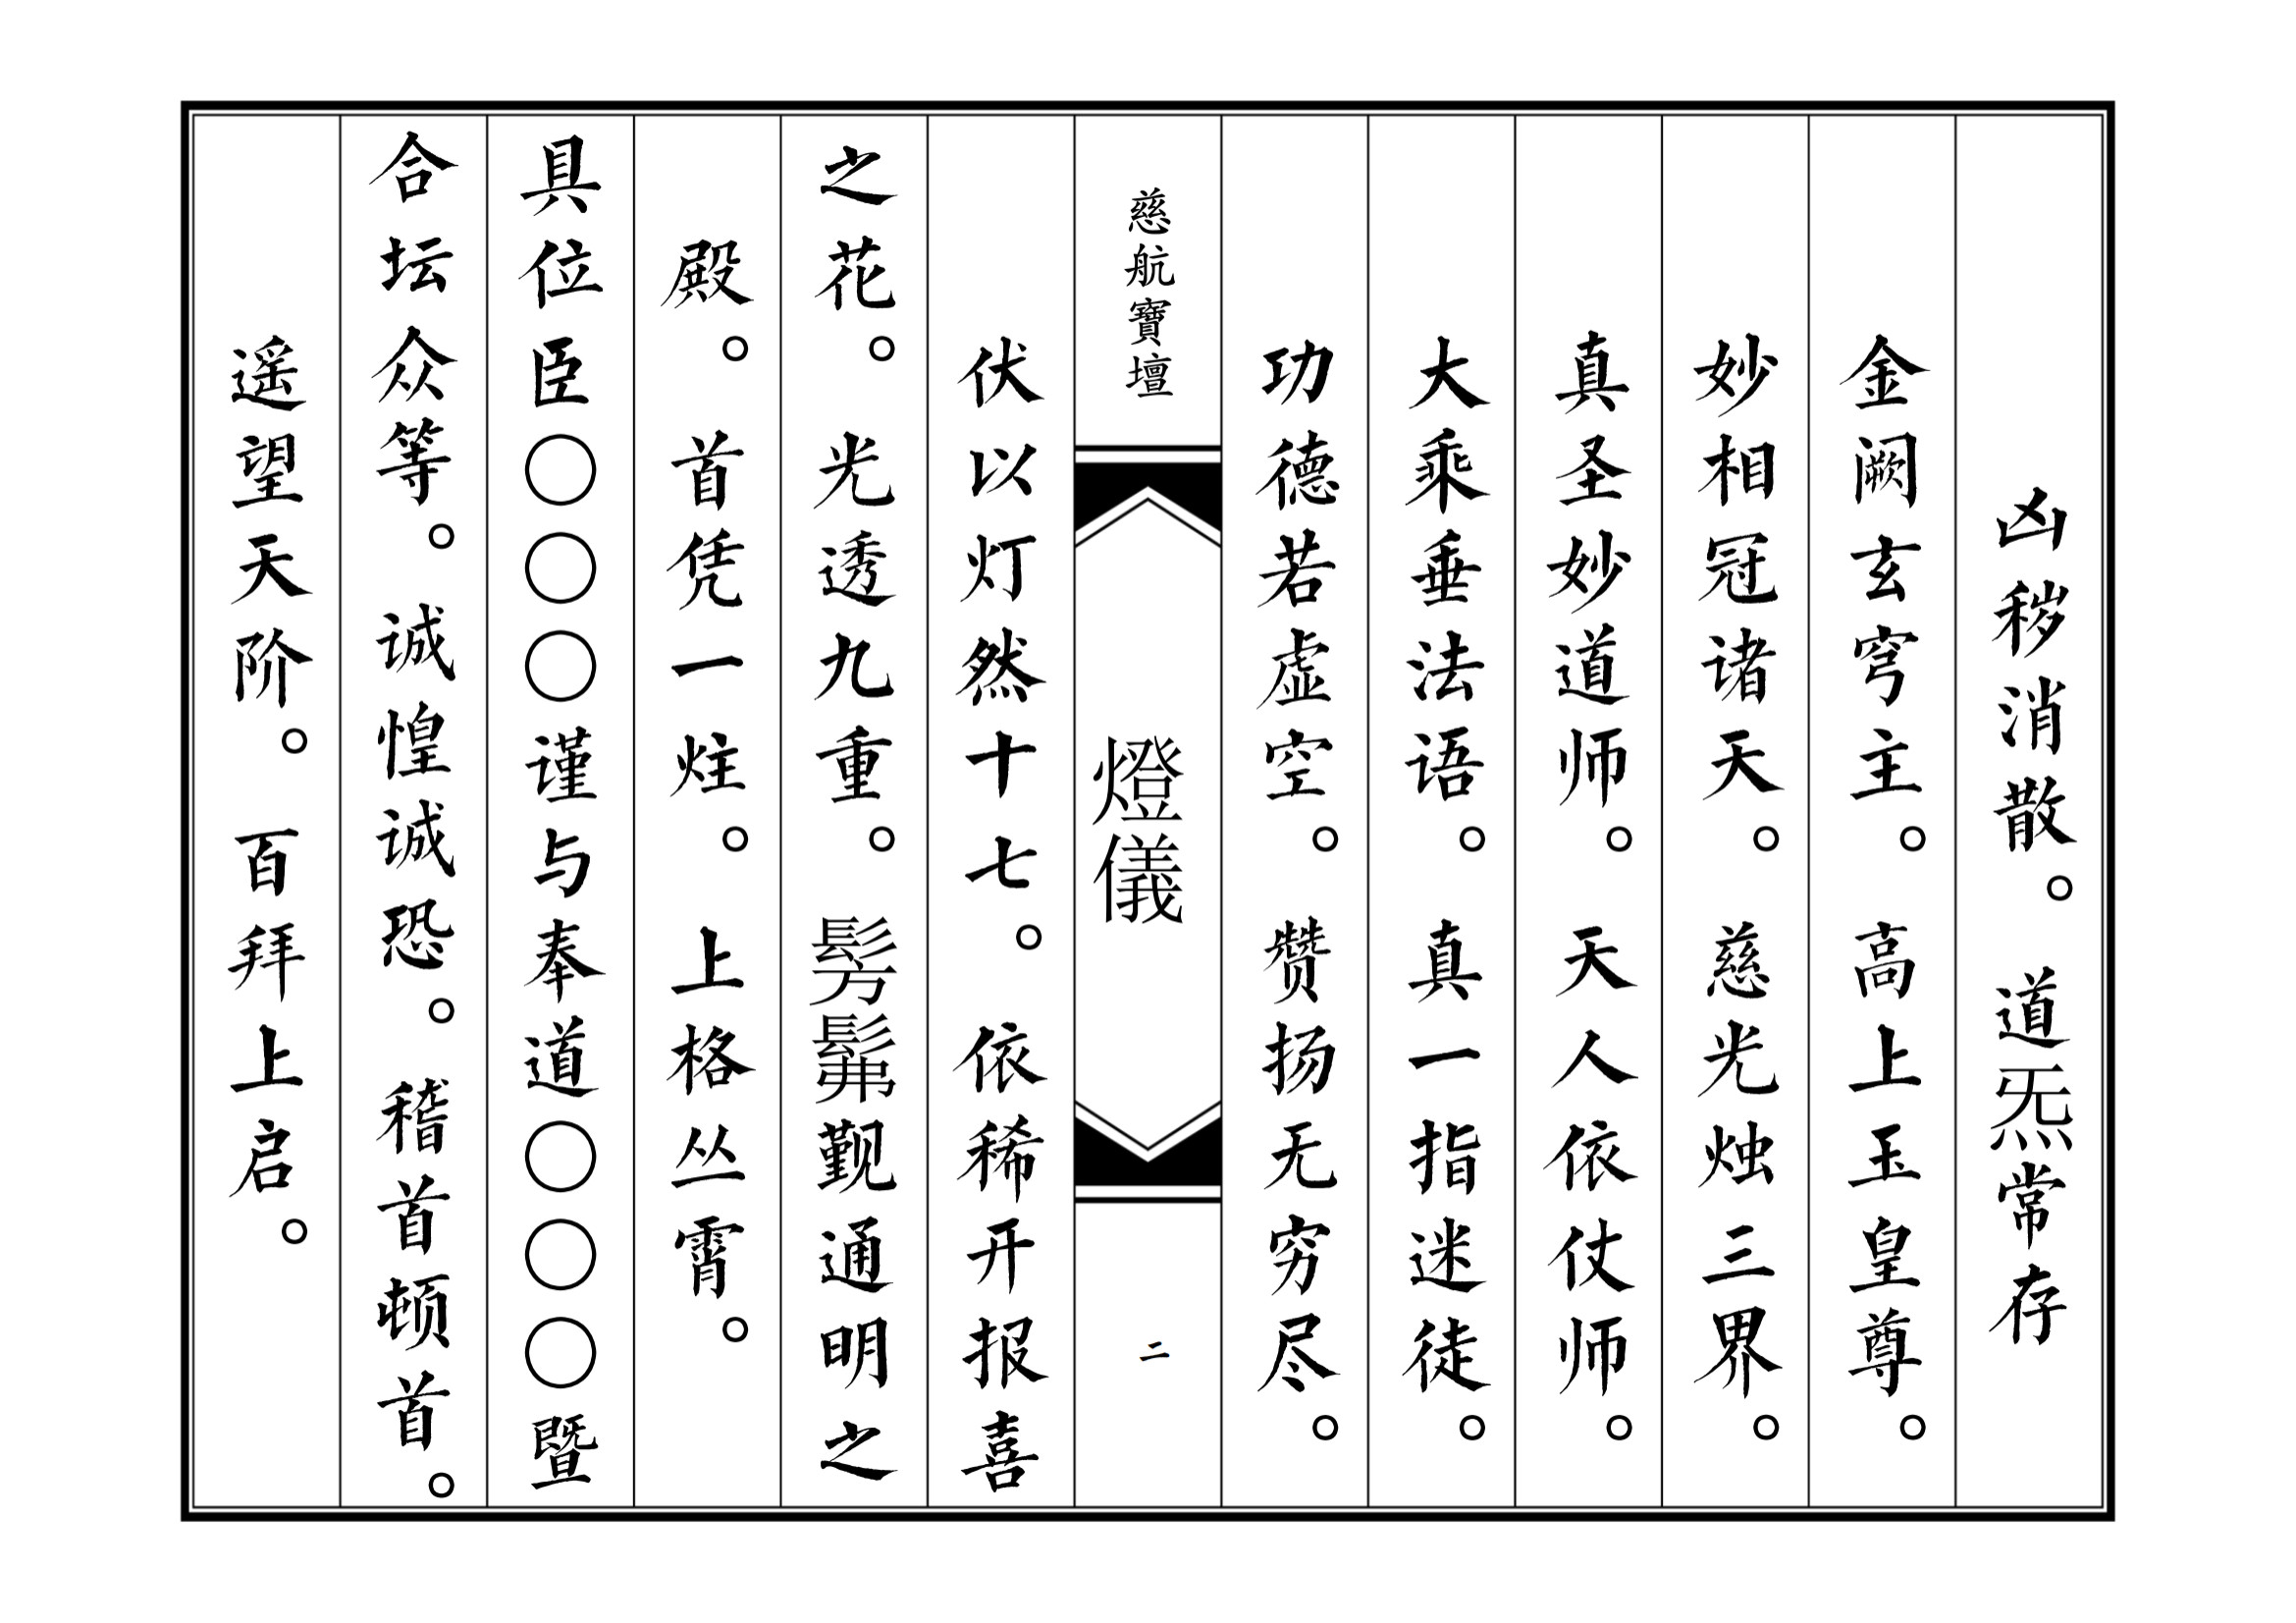 凶秽消散。道炁常存
金阙玄穹主。高上玉皇尊。
妙相冠诸天。慈光烛三界。
真圣妙道师。天人依仗师。
大乘垂法语。真一指迷徒。
功德若虚空。赞扬无穷尽。
慈航寶壇
燈儀
二
伏以灯然十七。依稀开报喜
之花。光透九重。髣髴觐通明之
殿。首凭一炷。上格丛霄。
具位臣〇〇〇谨与奉道〇〇〇暨
合坛众等。诚惶诚恐。稽首顿首。
遥望天阶。百拜上启。